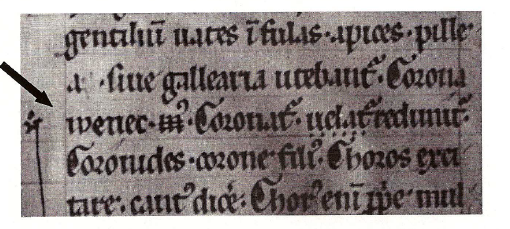 gentiliū uates īfulas · apices · pille
a · siue gallearia utebant᷑ · Corona
wenec · m̄ · Coronat᷑ · uelat᷑ redimit᷑ ·
Coronides · corone fili᷒ · Choros exci
tare · cant᷒ dicē · Chor᷒ enī ꝓpͤ mul